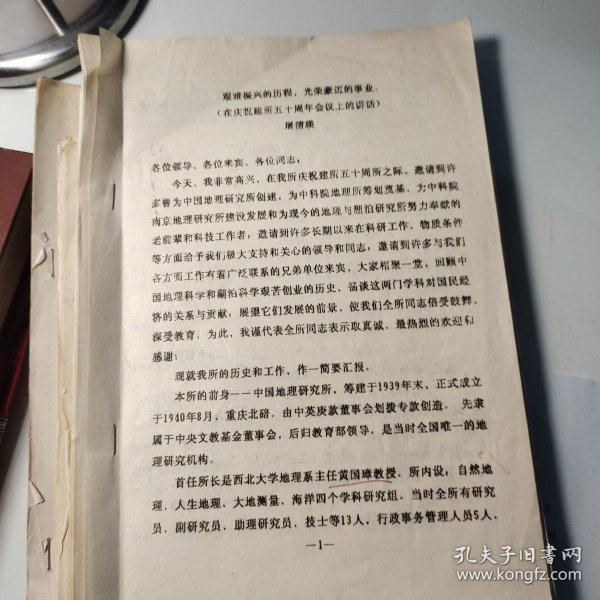 艰难振兴的历程，光荣豪迈的事业．
（在庆祝建所五十周年会议上的讲话）
屠清瑛
各位领导、各位来宾、各位同志：
今天，我非常高兴，在我所庆祝建所五十周所之际，邀请到许
多曾为中国地理研究所创建，为中科院地理所筹划奠基，为中科院
南京地理研究所建设发展和为现今的地理与湖泊研究所努力奉献的
老前辈和科技工作者；邀请到许多长期以来在科研工作、物质条件
等方面给予我们极大支持和关心的领导和同志；邀请到许多与我们
各方面工作有着广泛联系的兄弟单位来宾，大家相聚一堂，回顾中
国地理科学和湖泊科学艰苦创业的历史，畅谈这两门学科对国民经
济的关系与贡献；展望它们发展的前景，使我们全所同志倍受鼓舞，
深受教育．为此，我谨代表全所同志表示取真诚、最热烈的欢迎和
感谢！
现就我所的历史和工作，作一简要汇报．
本所的前身——中国地理研究所，筹建于1939年末，正式成立
于1940年8月，重庆北碚．由中英庚款董事会划拨专款创造．先隶
属于中央文教基金董事会，后归教育部领导，是当时全国唯一的地
理研究机构．
首任所长是西北大学地理系主任黄国璋教授．所内设：自然地
理，人生地理、大地测量、海洋四个学科研究组．当时全所有研究
员、副研究员、助理研究员、技士等13人，行政事务管理人员5人．
—1—
孔夫子旧书网
www.kongfz.com